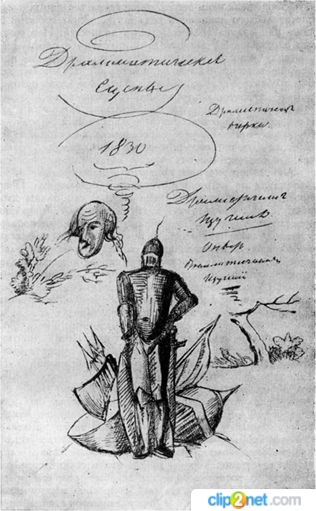 Драмматическія
Сцены
Драматическіе
очерки
1830
Драматическія
Изученія
Опыт
Драматических
Изученій
clip2net.com